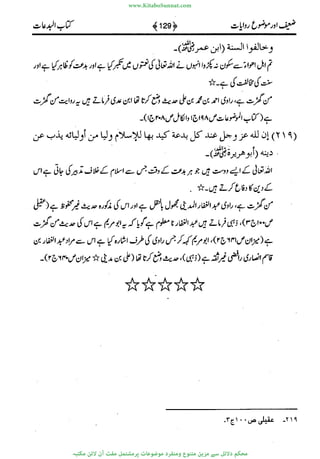 www.KitaboSunnat.com
ضعیف اور موضوع روایات ﴿129﴾ کتاب البدعات
وخالفوا السنة (ابن عمر رضی اللہ عنہ)۔
تم اہل اھواء سے سکون نہ پکڑو انہوں نے اللہ تعالیٰ کی نعمتوں میں تکبر کیا ہے اور بدعت کو ظاہر کیا ہے اور
سنت کی مخالفت کی ہے۔☆
من گھڑت ہے، راوی احمد بن محمد بن علی حدیث وضع کرتا تھا ابن عدی فرماتے ہیں یہ روایت من گھڑت
ہے (کتاب الموضوعات ص۱۹۸ج۱ والکامل ص۲۰۸ج۱)۔
(۲۱۹) إن لله عز وجل عند كل بدعة كيد بها للإسلام وليا من أوليائه يذب عن
دينه (أبوهريرة رضی اللہ عنہ)۔
اللہ تعالیٰ کے ایسے دوست ہیں جو ہر بدعت کے وقت جس سے اسلام کے خلاف تدبیر کی جاتی ہے اس
کے دین کا دفاع کرتے ہیں۔☆
من گھڑت ہے، راوی عبد الغفار المدینی مجہول بالنقل ہے اور اس کی مذکورہ حدیث غیر محفوظ ہے (عقیلی
ص۱۰۰ج۳)، ذہبی فرماتے ہیں عبد الغفار نا معلوم ہے گویا کہ یہ ابو مریم ہے اس کی حدیث من گھڑت
ہے (میزان ص۶۴۱ج۲)، ابو مریم کہہ کر جس راوی کی طرف اشارہ کیا ہے اس سے مراد عبد الغفار بن
قاسم انصاری رافضی غیر ثقہ ہے (ذہبی)، حدیث وضع کرتا تھا (علی بن مدینی ☆ میزان ص۶۴۰ج۲)۔
☆☆☆☆☆
۲۱۹۔ عقیلی ص۱۰۰ج۳۔
محکم دلائل سے مزین متنوع ومنفرد موضوعات پر مشتمل مفت آن لائن مکتبہ